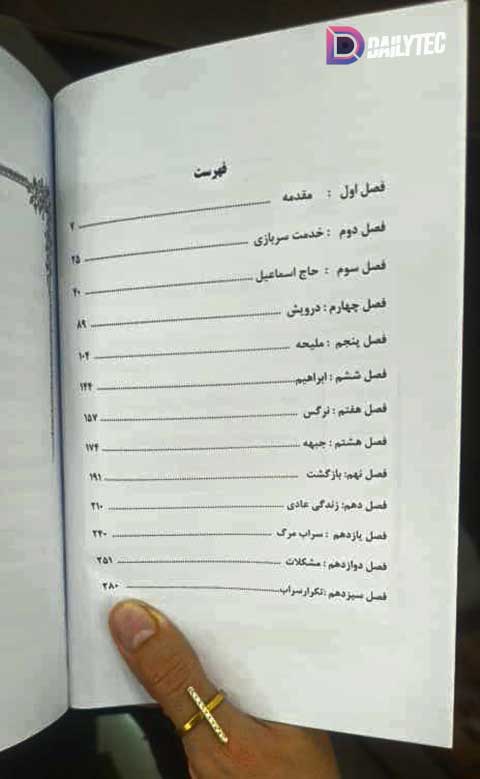 DAILYTEC
فهرست
فصل اول : مقدمه ........ ۷
فصل دوم : خدمت سربازی ........ ۲۵
فصل سوم : حاج اسماعیل ........ ۴۰
فصل چهارم : درویش ........ ۸۹
فصل پنجم : ملیحه ........ ۱۰۴
فصل ششم : ابراهیم ........ ۱۴۴
فصل هفتم : نرگس ........ ۱۵۷
فصل هشتم : جبهه ........ ۱۷۴
فصل نهم: بازگشت ........ ۱۹۱
فصل دهم: زندگی عادی ........ ۲۱۰
فصل یازدهم : سراب مرگ ........ ۲۴۰
فصل دوازدهم : مشکلات ........ ۲۵۱
فصل سیزدهم :تکرارسراب ........ ۲۸۰